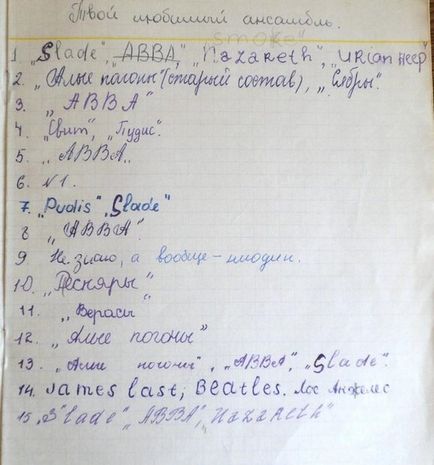 Твой любимый ансамбль.
"Smoke"
1 „Slade", „ABBA", „Nazareth", „URIan HEEP"
2. „Алые погоны" (старый состав), „Сябры".
3. „ABBA"
4. „Свит", „Пудис".
5. „ABBA„
6. N1.
7. „Pudis" „Slade"
8 „ABBA".
9 Не знаю, а вообще – ни один.
10. „Песняры"
11. „Верасы"
12. „Алые погоны"
13. „Алые погоны", „ABBA", „Slade".
14. James last, Beatles. Лос Анжелес
15 „Slade" „ABBA", „Nazareth"